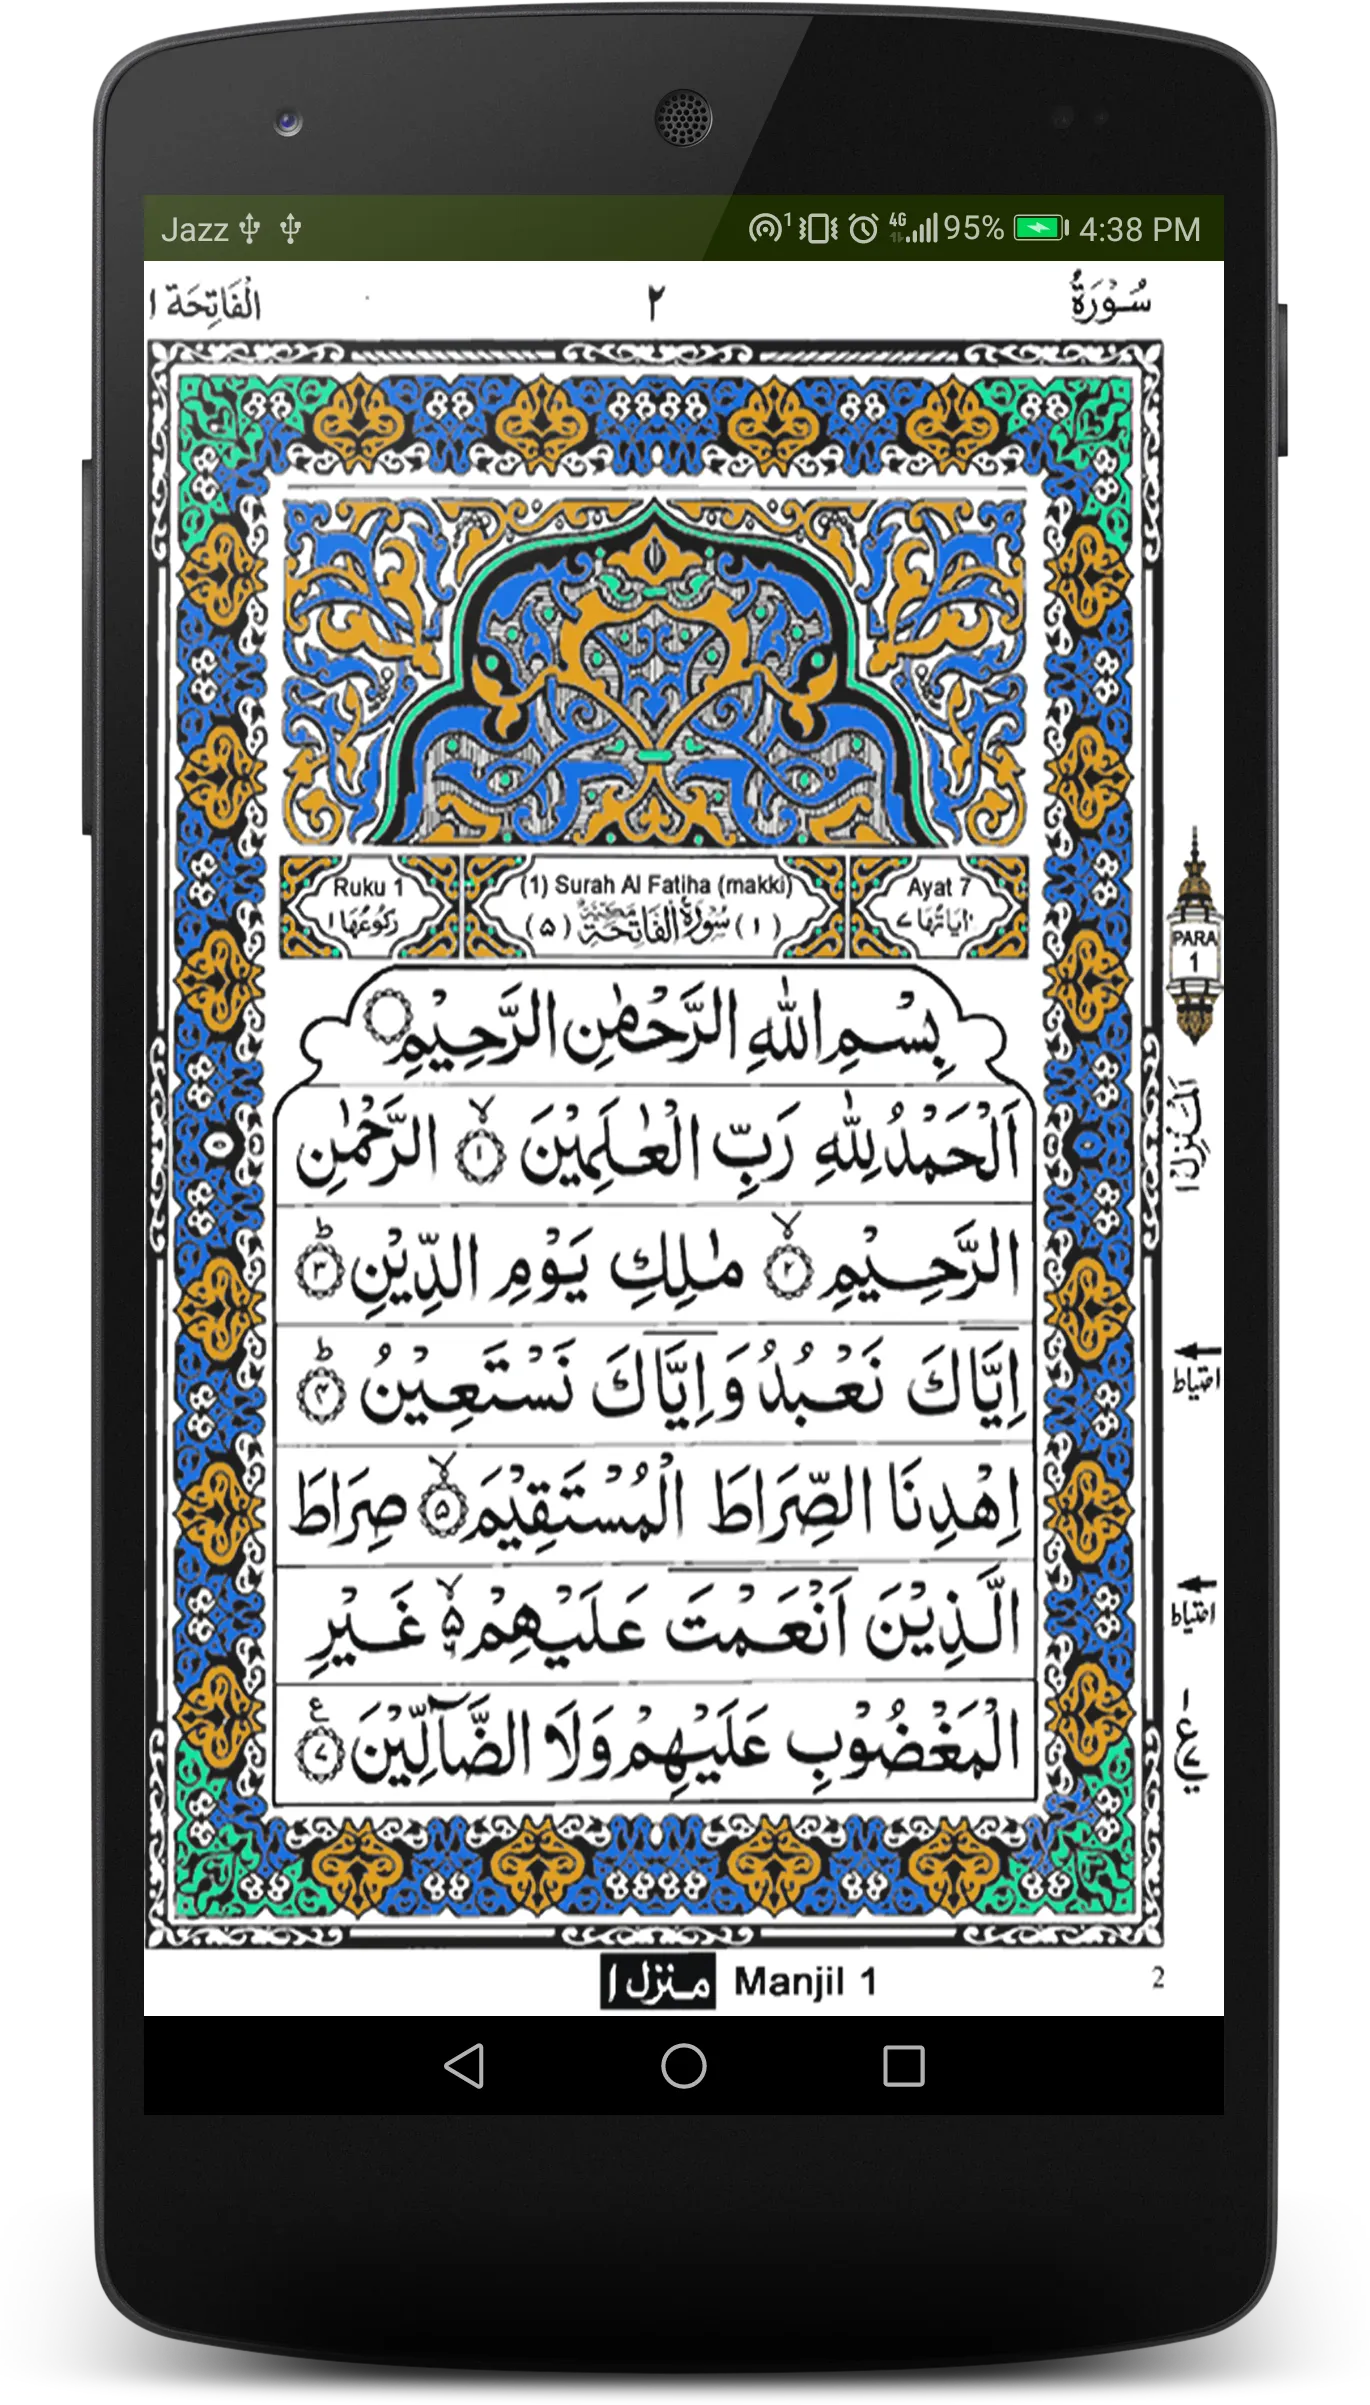 Jazz 1 4G 95% 4:38 PM
سُوْرَةُ ٢ الْفَاتِحَة ١
Ruku 1 (1) Surah Al Fatiha (makki) Ayat 7
اٰيَاتُهَا ٧ (١) سُوْرَةُ الْفَاتِحَةِ مَكِّيَّةٌ (٥) رَكُوْعُهَا ١
PARA
1
بِسْمِ اللّٰهِ الرَّحْمٰنِ الرَّحِيْمِ
اَلْحَمْدُ لِلّٰهِ رَبِّ الْعٰلَمِيْنَ ۙ ١ الرَّحْمٰنِ
الرَّحِيْمِ ۙ ٢ مٰلِكِ يَوْمِ الدِّيْنِ ؕ ٣
اِيَّاكَ نَعْبُدُ وَ اِيَّاكَ نَسْتَعِيْنُ ؕ ۴
اِهْدِنَا الصِّرَاطَ الْمُسْتَقِيْمَ ۙ ۵ صِرَاطَ
الَّذِيْنَ اَنْعَمْتَ عَلَيْهِمْ ۙ۵ غَيْرِ
الْمَغْضُوْبِ عَلَيْهِمْ وَلَا الضَّآلِّيْنَ ۧ ٧
اَلْمَنْزِل ١
احتیاط
احتیاط
ع
منزل ١ Manjil 1 2